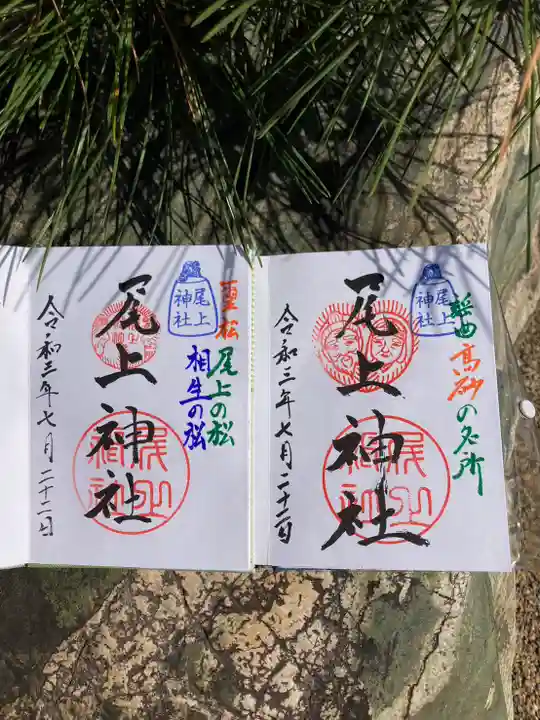 謡曲高砂の名所
尾上
神社
尾上神社
令和三年七月二十二日
霊松
尾上の松
相生の松
尾上
神社
尾上神社
令和三年七月二十二日